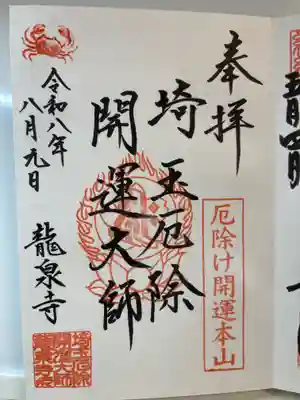 奉拝
埼玉厄除
開運大師
厄除け開運本山
令和八年
八月元日
龍泉寺